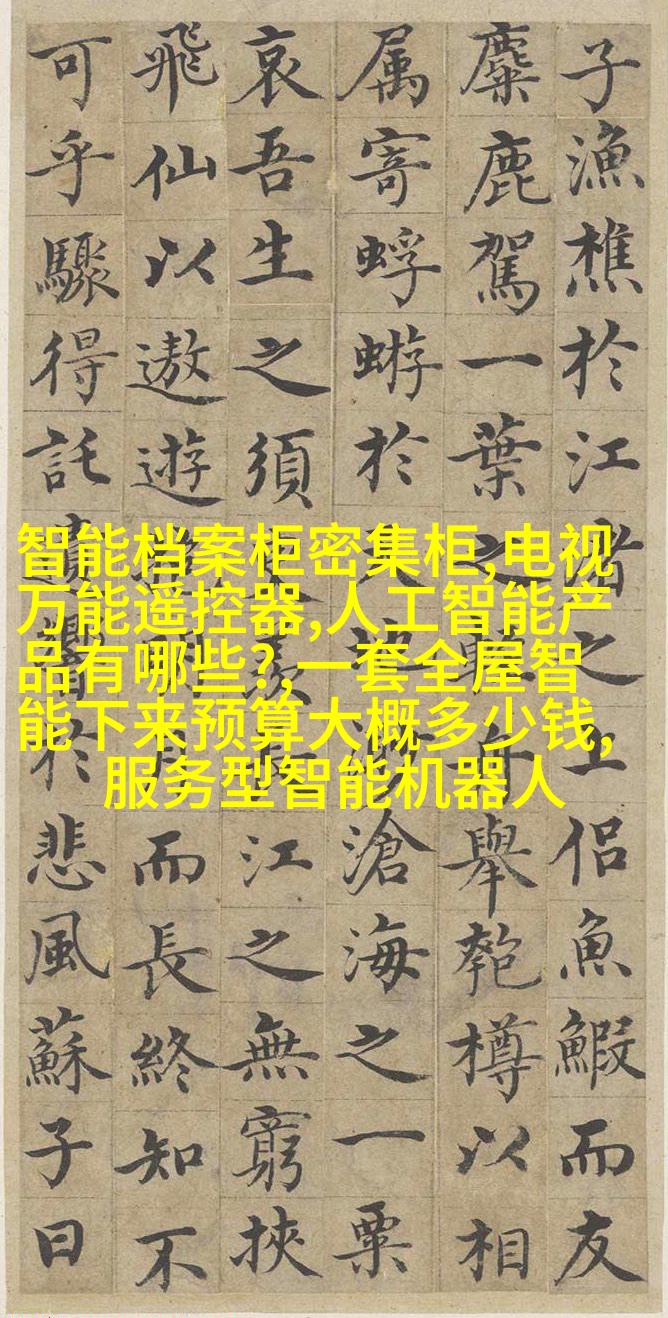 子漁樵於江渚之上侶魚鰕而友
麋鹿駕一葉之輕舟舉匏樽以相
属寄蜉蝣於天地渺滄海之一粟
哀吾生之須臾羨長江之無窮挾
飛仙以遨遊抱明月而長終知不
可乎驟得託遺響於悲風蘇子曰
智能档案柜密集柜,电视
万能遥控器,人工智能产
品有哪些?,一套全屋智
能下来预算大概多少钱,
服务型智能机器人